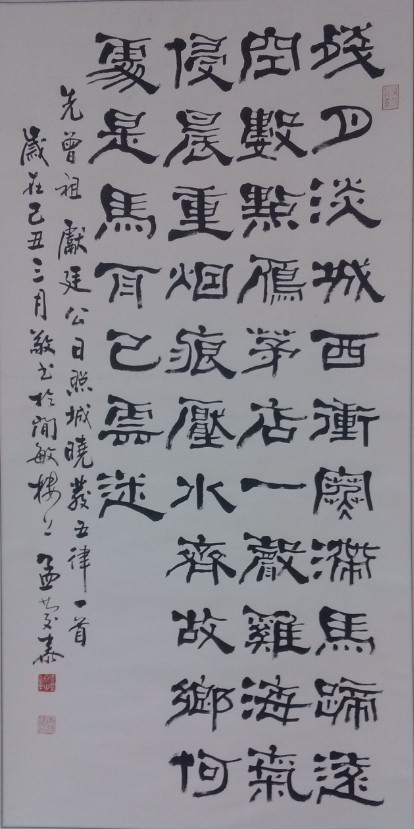 殘月淡城西衝寒滯馬蹄遠
空數點鴈茅店一聲雞海氣
侵晨重烟痕壓水齊故鄉何
處是馬首已雲迷
先曾祖 獻廷公日照城曉發五律一首
歲在己丑三月敬书於敏樓上 孟慶泰